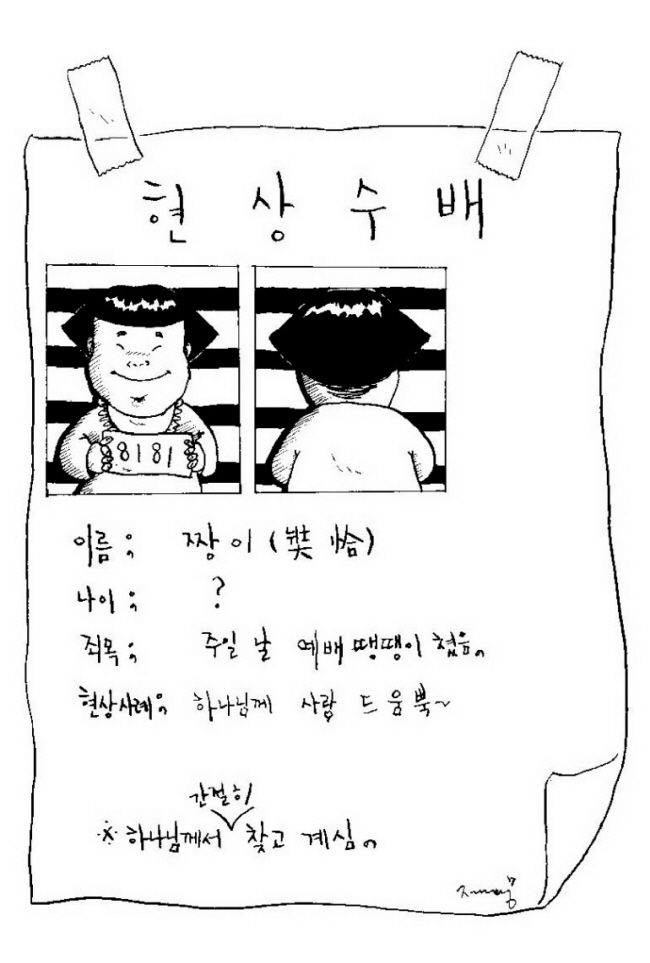 현상수배
8181
이름: 짱이 (
나이: ?
죄목: 주일 날 예배 땡땡이 쳤음.
현상사례: 하나님께 사랑 드음뿍~
간절히
※ 하나님께서 찾고 계심.